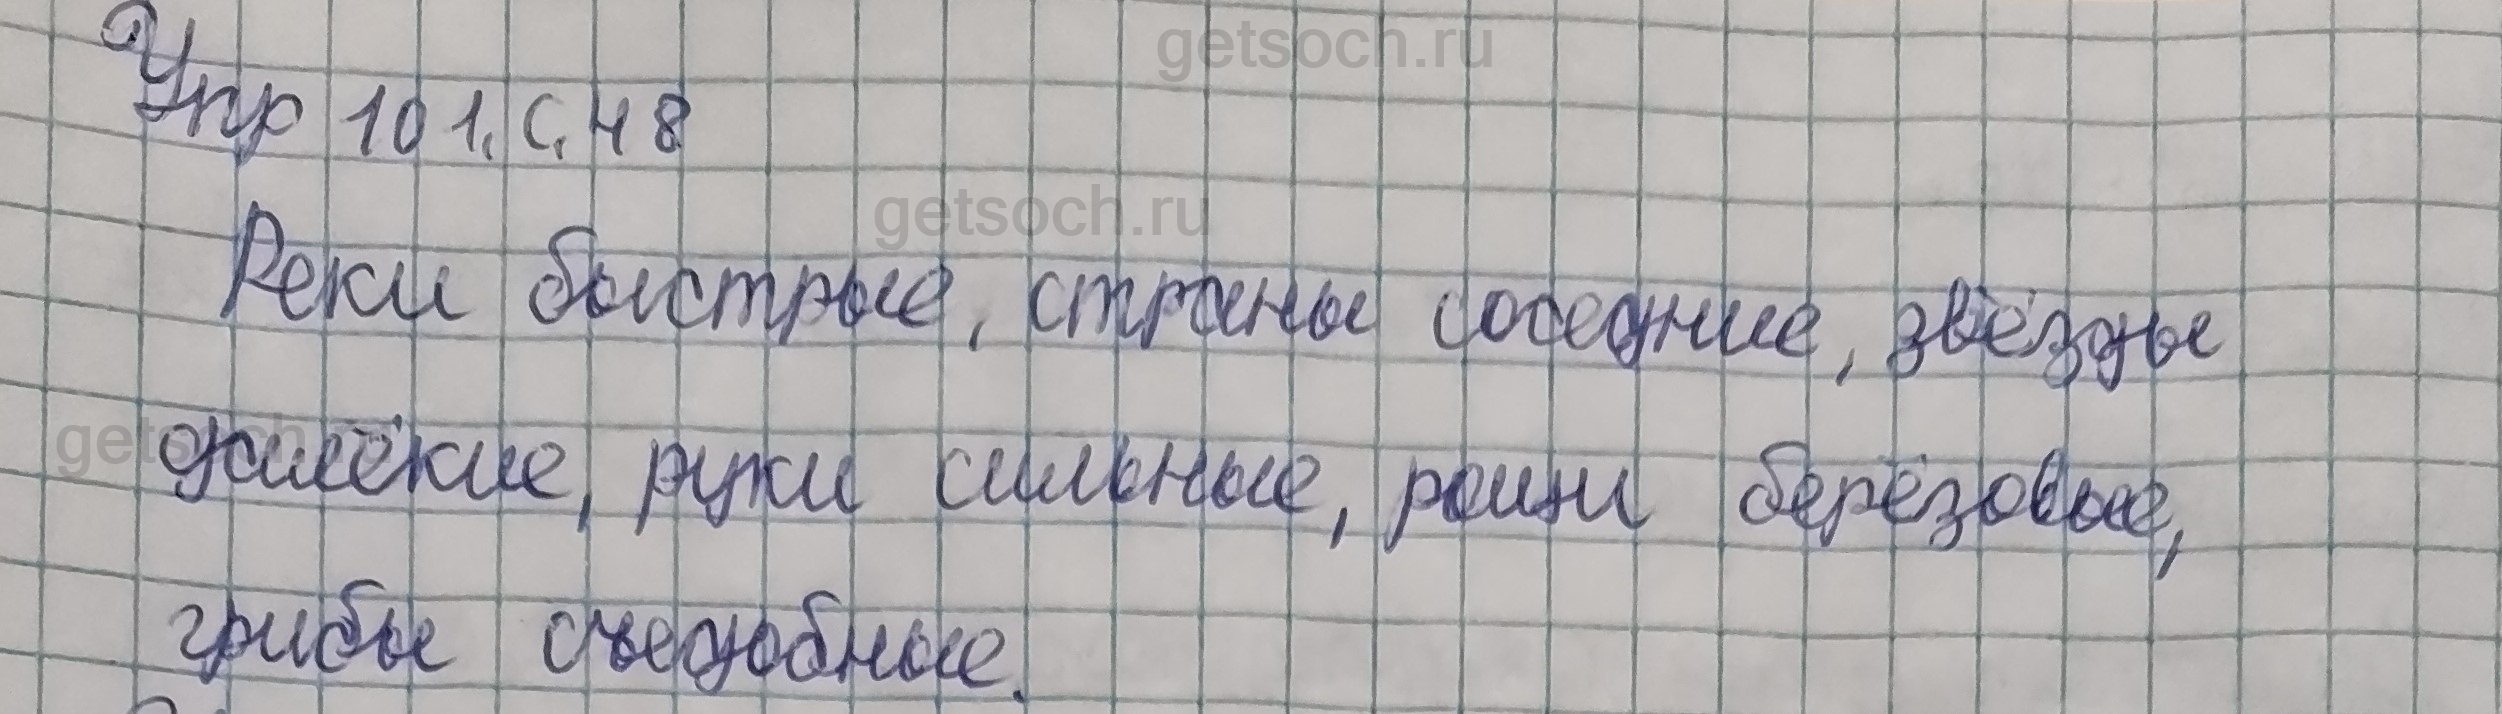 getsoch.ru
Упр 101. С. 48
getsoch.ru
Реки быстрые, страны соседние, звёзды
getsoch.ru
далёкие, руки сильные, рощи берёзовые,
грибы съедобные.